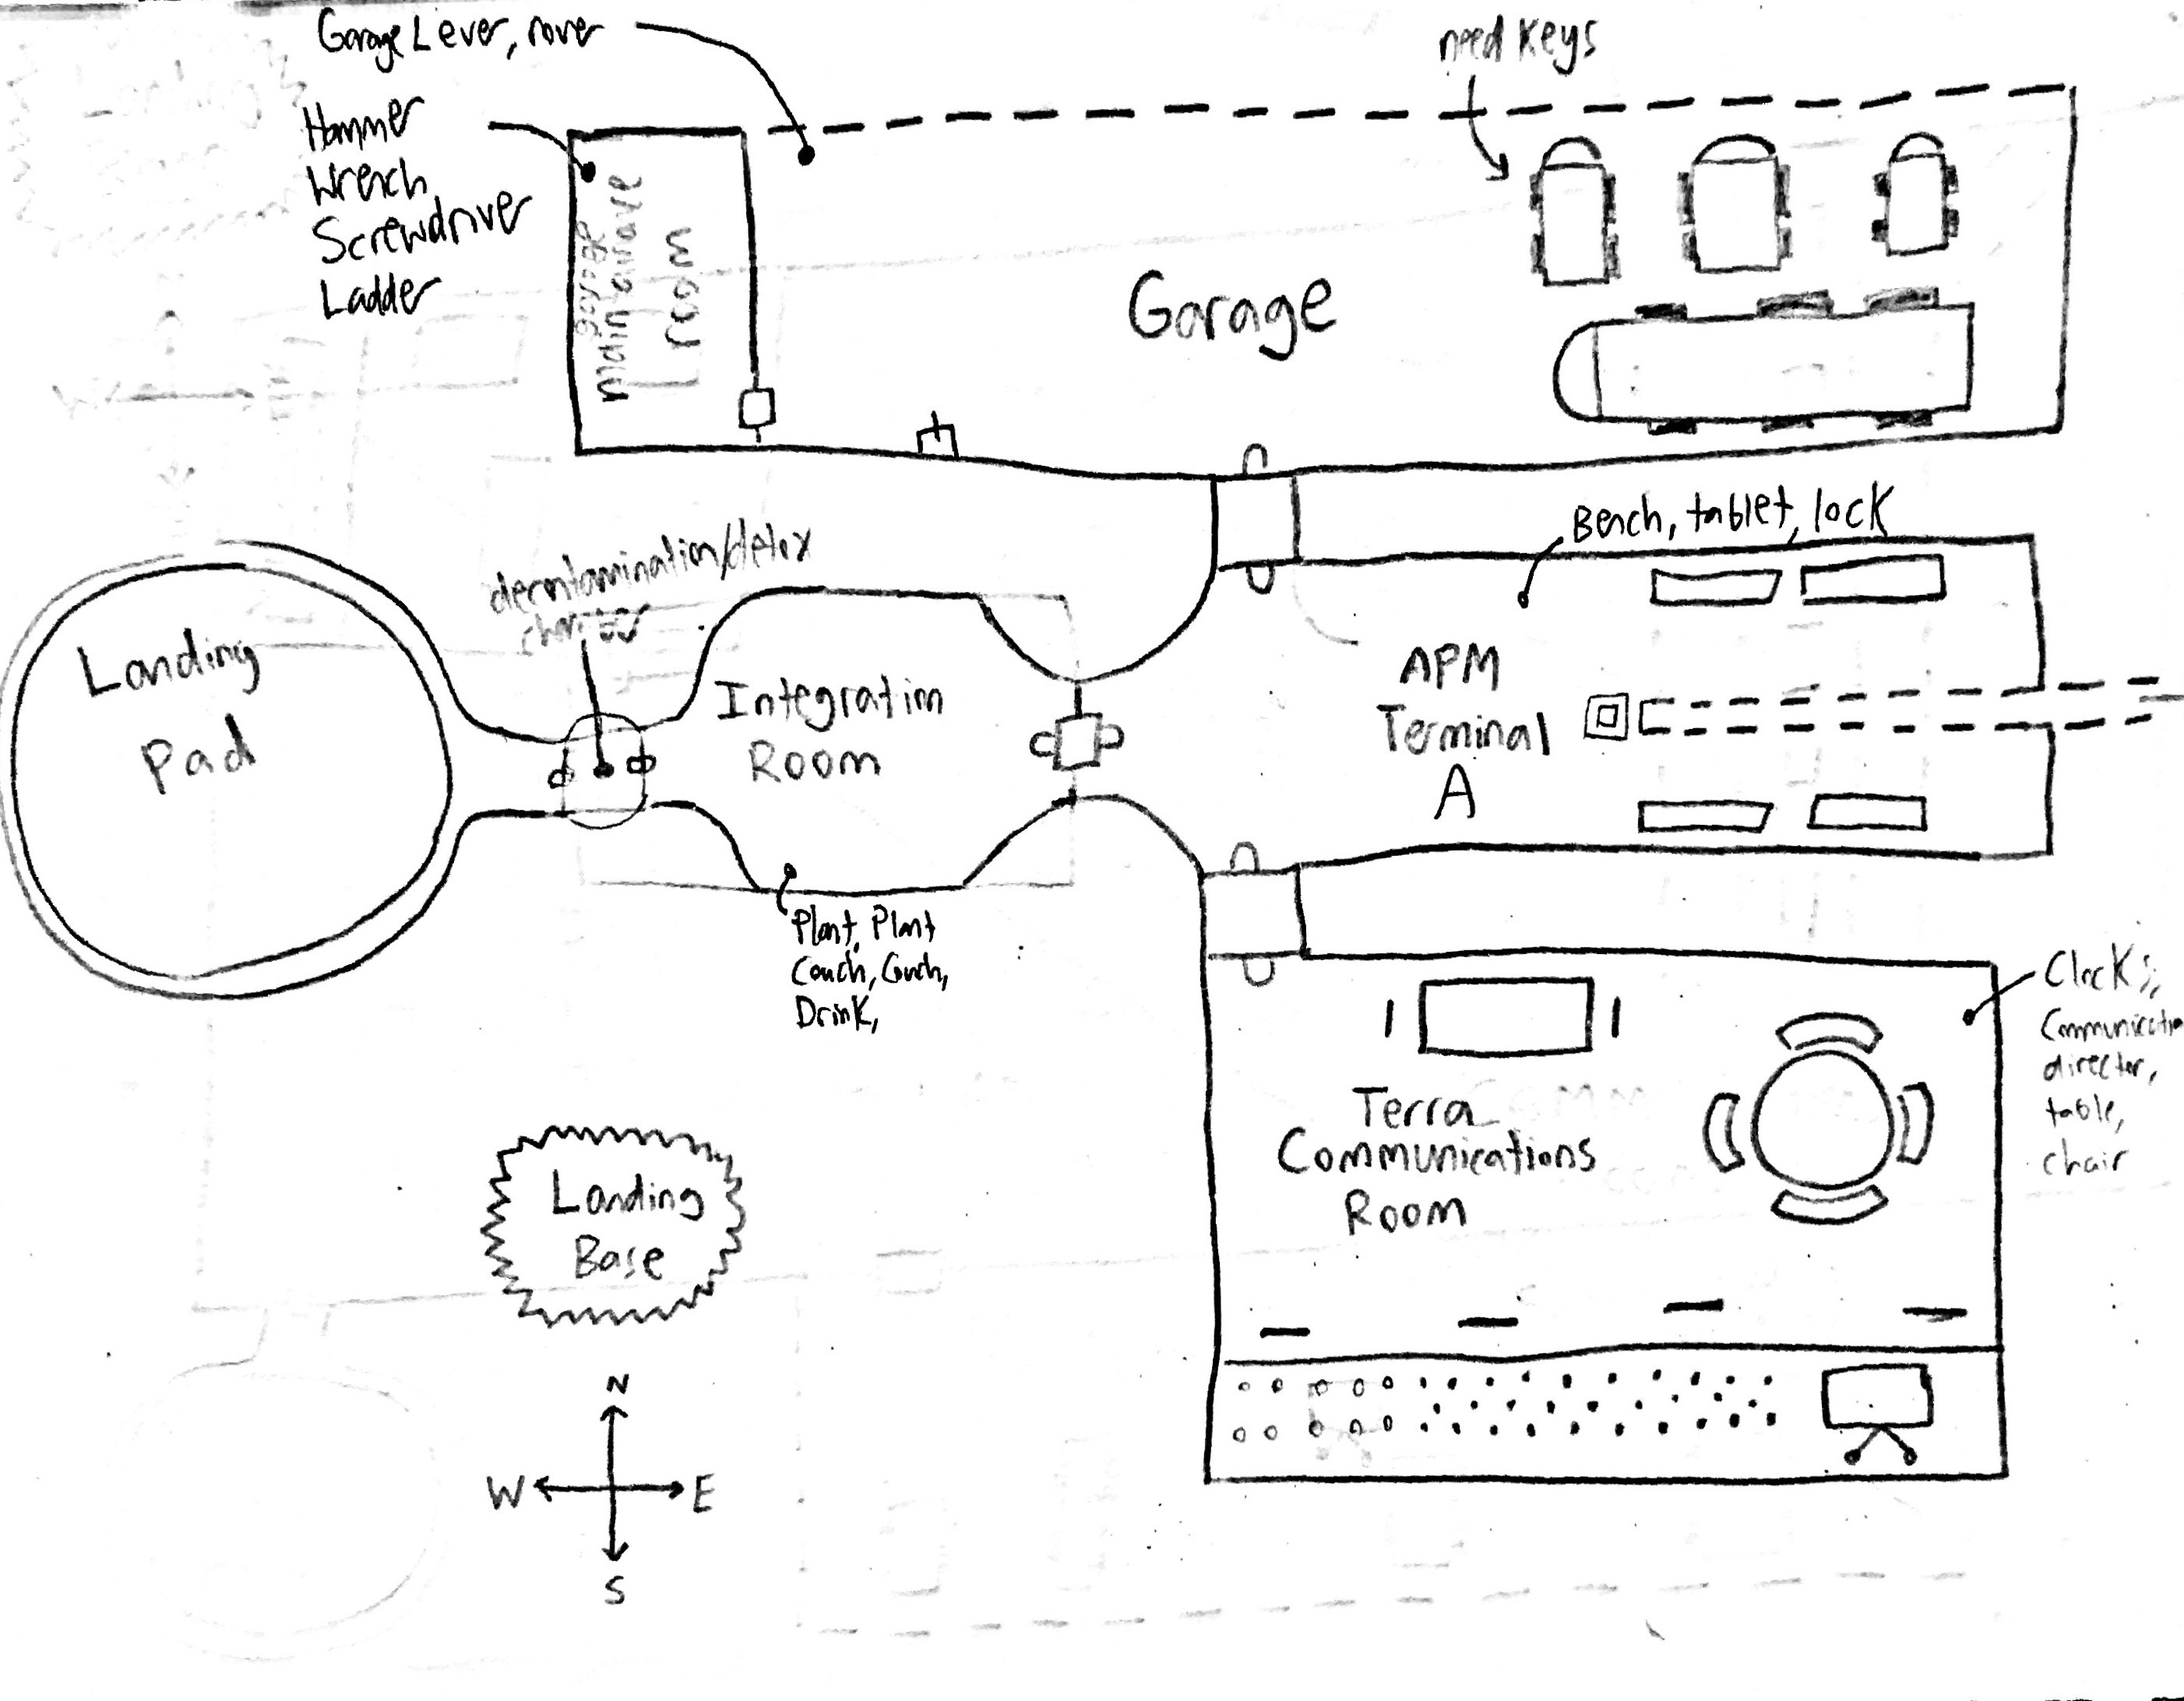 Garage Lever, rover
need keys
Hammer
Wrench
Screwdriver
Ladder
garage
maintenance
room
Garage
Bench, tablet, lock
decontamination/detox
chamber
Landing
Pad
Integration
Room
APM
Terminal
A
Plant, Plant
Couch, Couch,
Drink,
Clocks,
Communication
director,
table,
chair
Terra
Communications
Room
Landing
Base
N
W
E
S